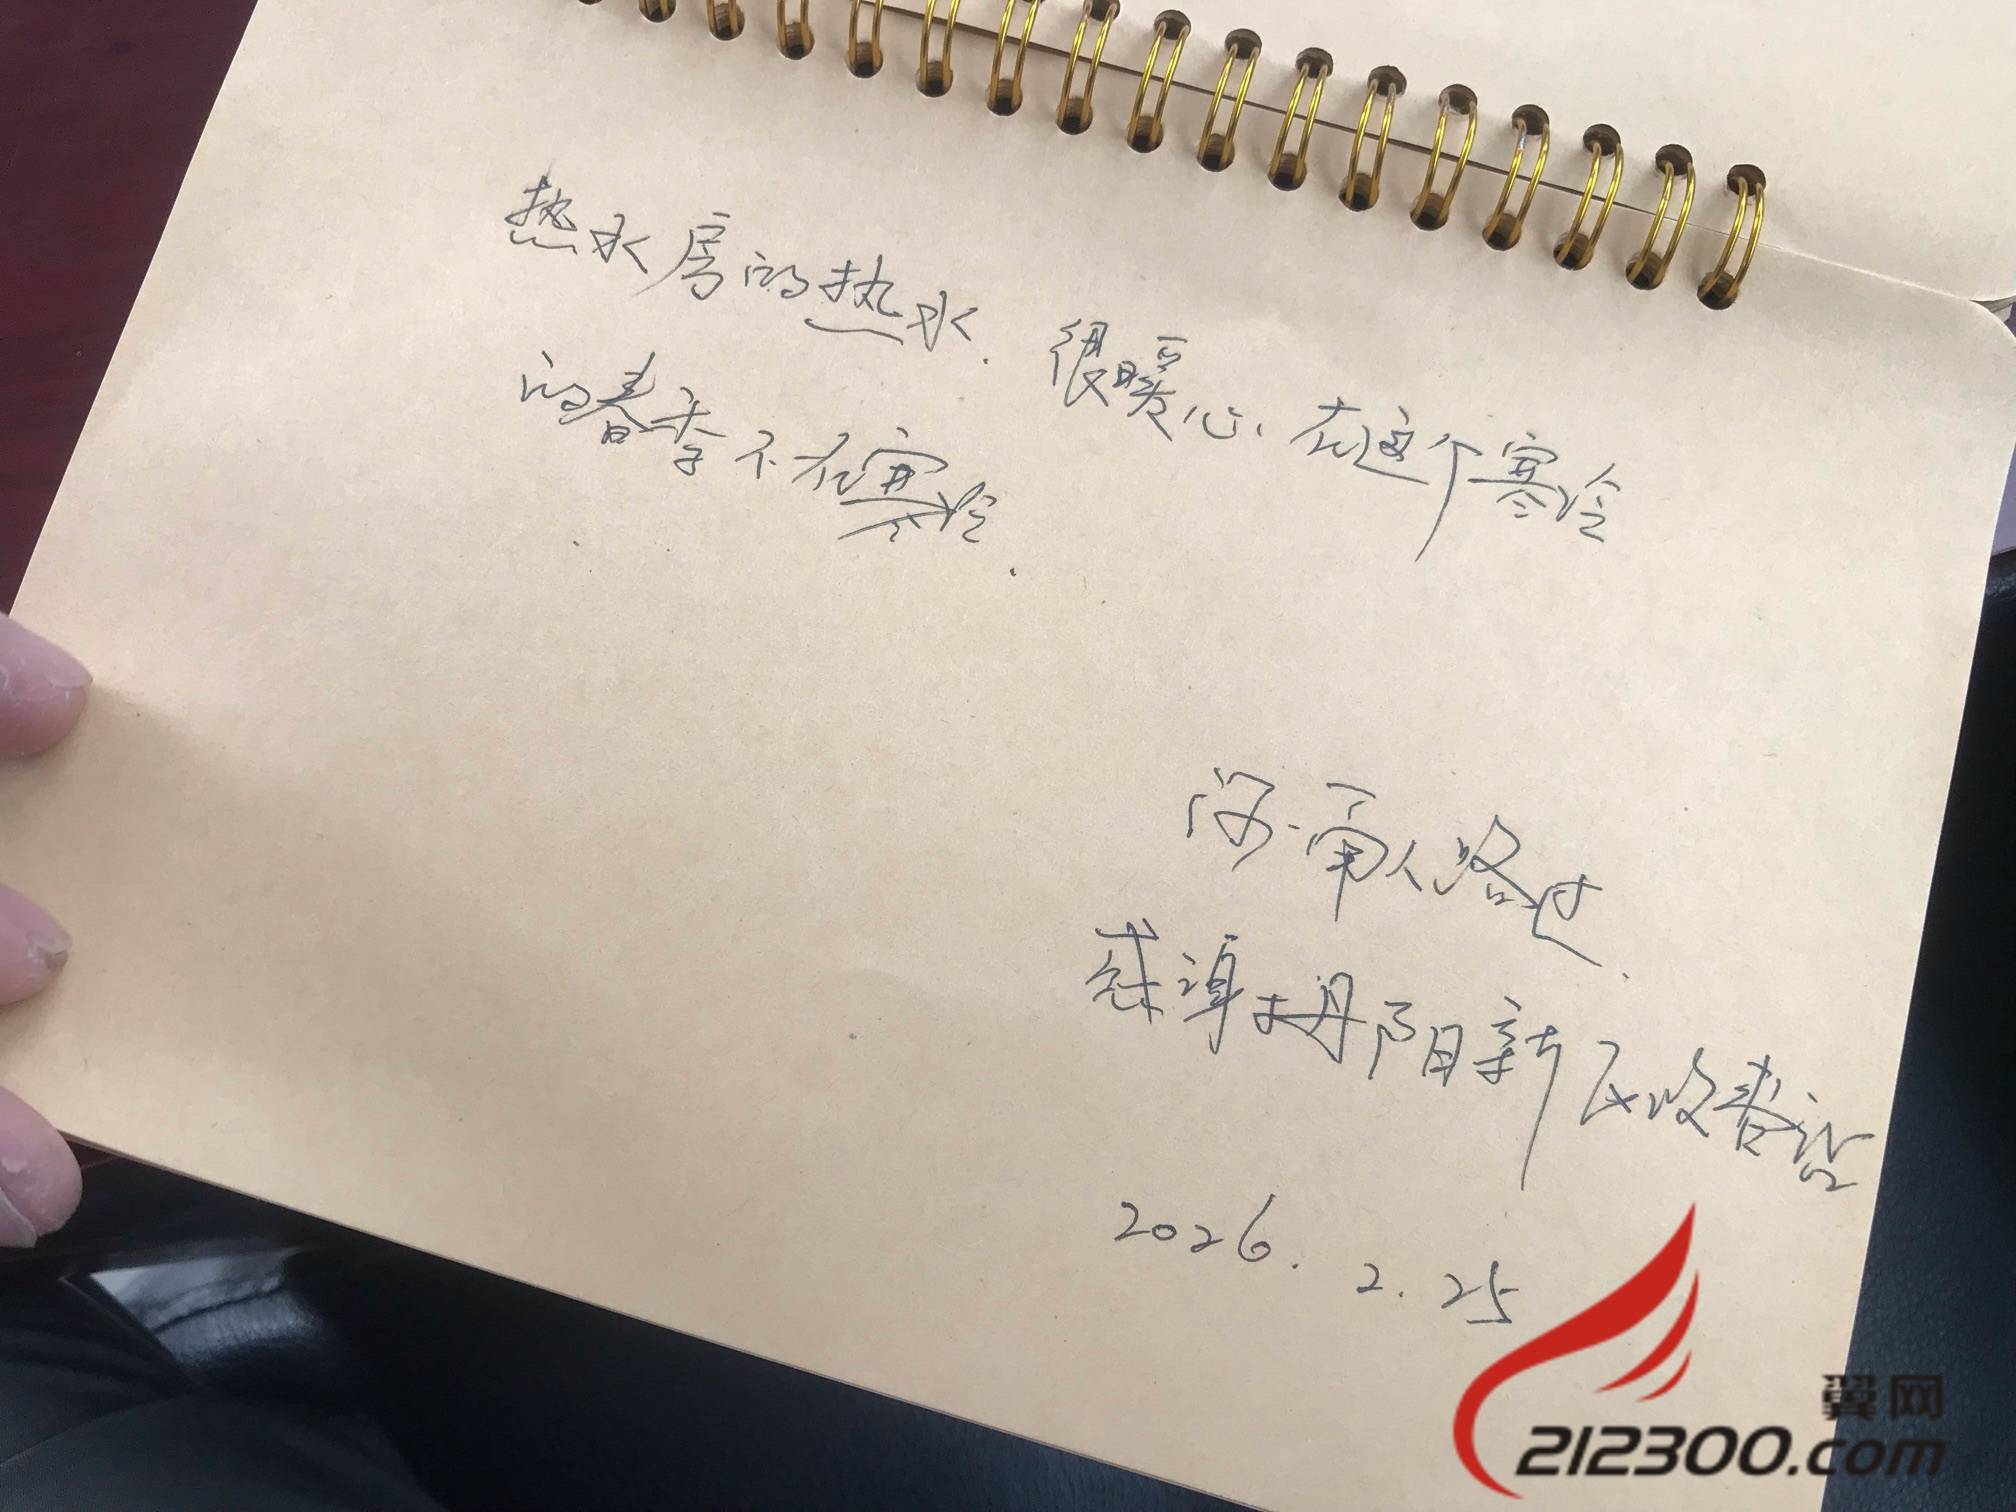 热水房的热水.很暖心.在这个寒冷
的春季不在寒冷.
河南人路过.
感谢丹阳新区改善设
2026.2.25
翼网
212300.com